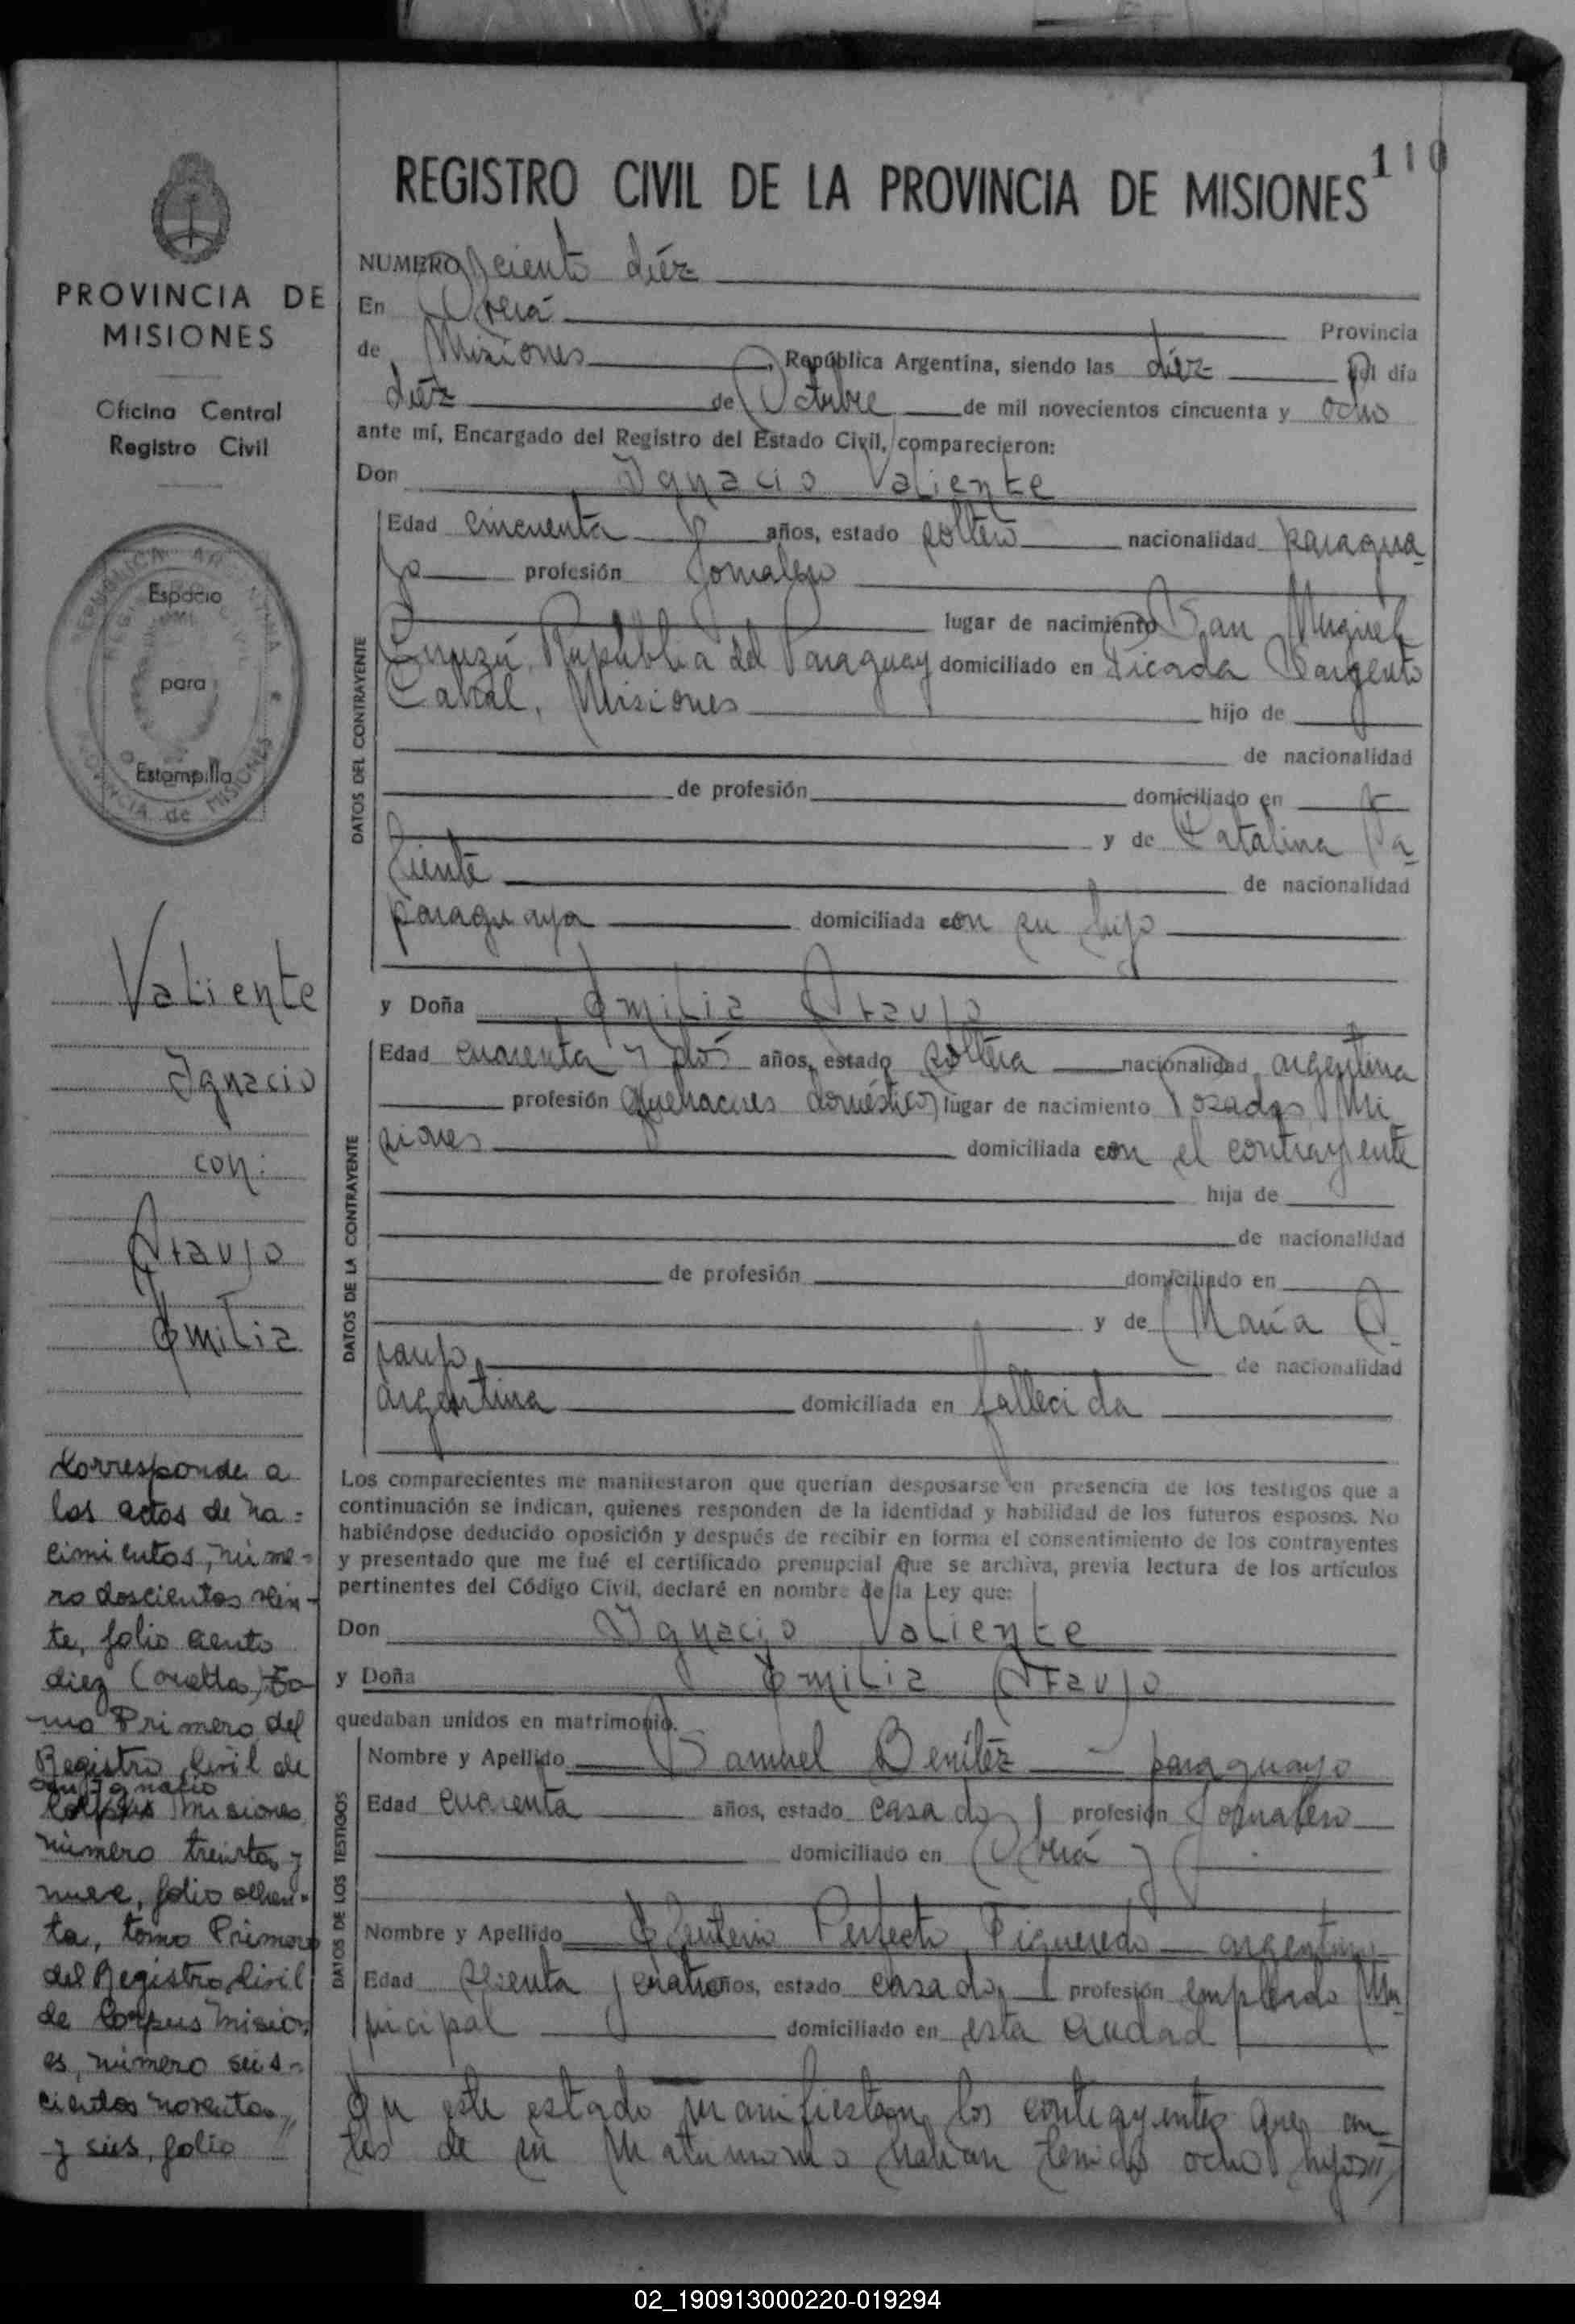 110
REGISTRO CIVIL DE LA PROVINCIA DE MISIONES
PROVINCIA DE
MISIONES
Oficina Central
Registro Civil
Espacio
para
Estampilla
Valiente
Ignacio
con:
Araujo
Emilia
Corresponde a
las actas de na=
cimientos, núme=
ro doscientos vein-
te, folio ciento
diez (vuelta) to-
mo Primero del
Registro Civil de
San Ignacio
Misiones
número treinta y
nueve, folio ochen=
ta, tomo Primero
del Registro Civil
de Corpus Mision
es, número seis=
cientos noventa
y seis, folio //
NUMERO ciento diéz
En Oberá Provincia
de Misiones, República Argentina, siendo las diéz del día
diéz de Octubre de mil novecientos cincuenta y ocho
ante mí, Encargado del Registro del Estado Civil, comparecieron:
Don Ignacio Valiente
DATOS DEL CONTRAYENTE
Edad cincuenta años, estado soltero nacionalidad paragua-
yo profesión Jornalero
lugar de nacimiento San Miguel
República del Paraguay domiciliado en Picada Sargento
Cabral, Misiones hijo de
de nacionalidad
de profesión domiciliado en
y de Catalina Va-
liente de nacionalidad
paraguaya domiciliada con su hijo
y Doña Emilia Araujo
DATOS DE LA CONTRAYENTE
Edad cuarenta y dós años, estado soltera nacionalidad argentina
profesión Quehaceres domésticos lugar de nacimiento Posadas, Mi
siones domiciliada con el contrayente
hija de
de nacionalidad
de profesión domiciliado en
y de María A-
raujo de nacionalidad
argentina domiciliada en fallecida
Los comparecientes me manifestaron que querían desposarse en presencia de los testigos que a
continuación se indican, quienes responden de la identidad y habilidad de los futuros esposos. No
habiéndose deducido oposición y después de recibir en forma el consentimiento de los contrayentes
y presentado que me fué el certificado prenupcial que se archiva, previa lectura de los artículos
pertinentes del Código Civil, declaré en nombre de la Ley que:
Don Ignacio Valiente
y Doña Emilia Araujo
quedaban unidos en matrimonio.
DATOS DE LOS TESTIGOS
Nombre y Apellido Samuel Benítéz — paraguayo
Edad cuarenta años, estado casado, profesión Jornalero
domiciliado en Oberá y
Nombre y Apellido Eleuterio Perfecto Figueredo — argentino
Edad sesenta y cuatro años, estado casado, profesión empleado Mu
nicipal domiciliado en esta ciudad
En este estado manifiestan los contrayentes que an-
tes de su Matrimonio habian tenido ocho hijos//
02_190913000220-019294